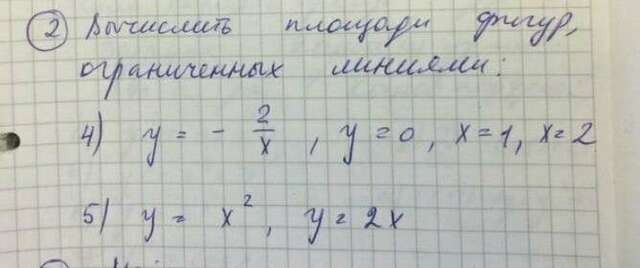 ② Вычислить площади фигур,
ограниченных линиями:
4) y = - 2/x , y = 0, x = 1, x = 2
5) y = x², y = 2x